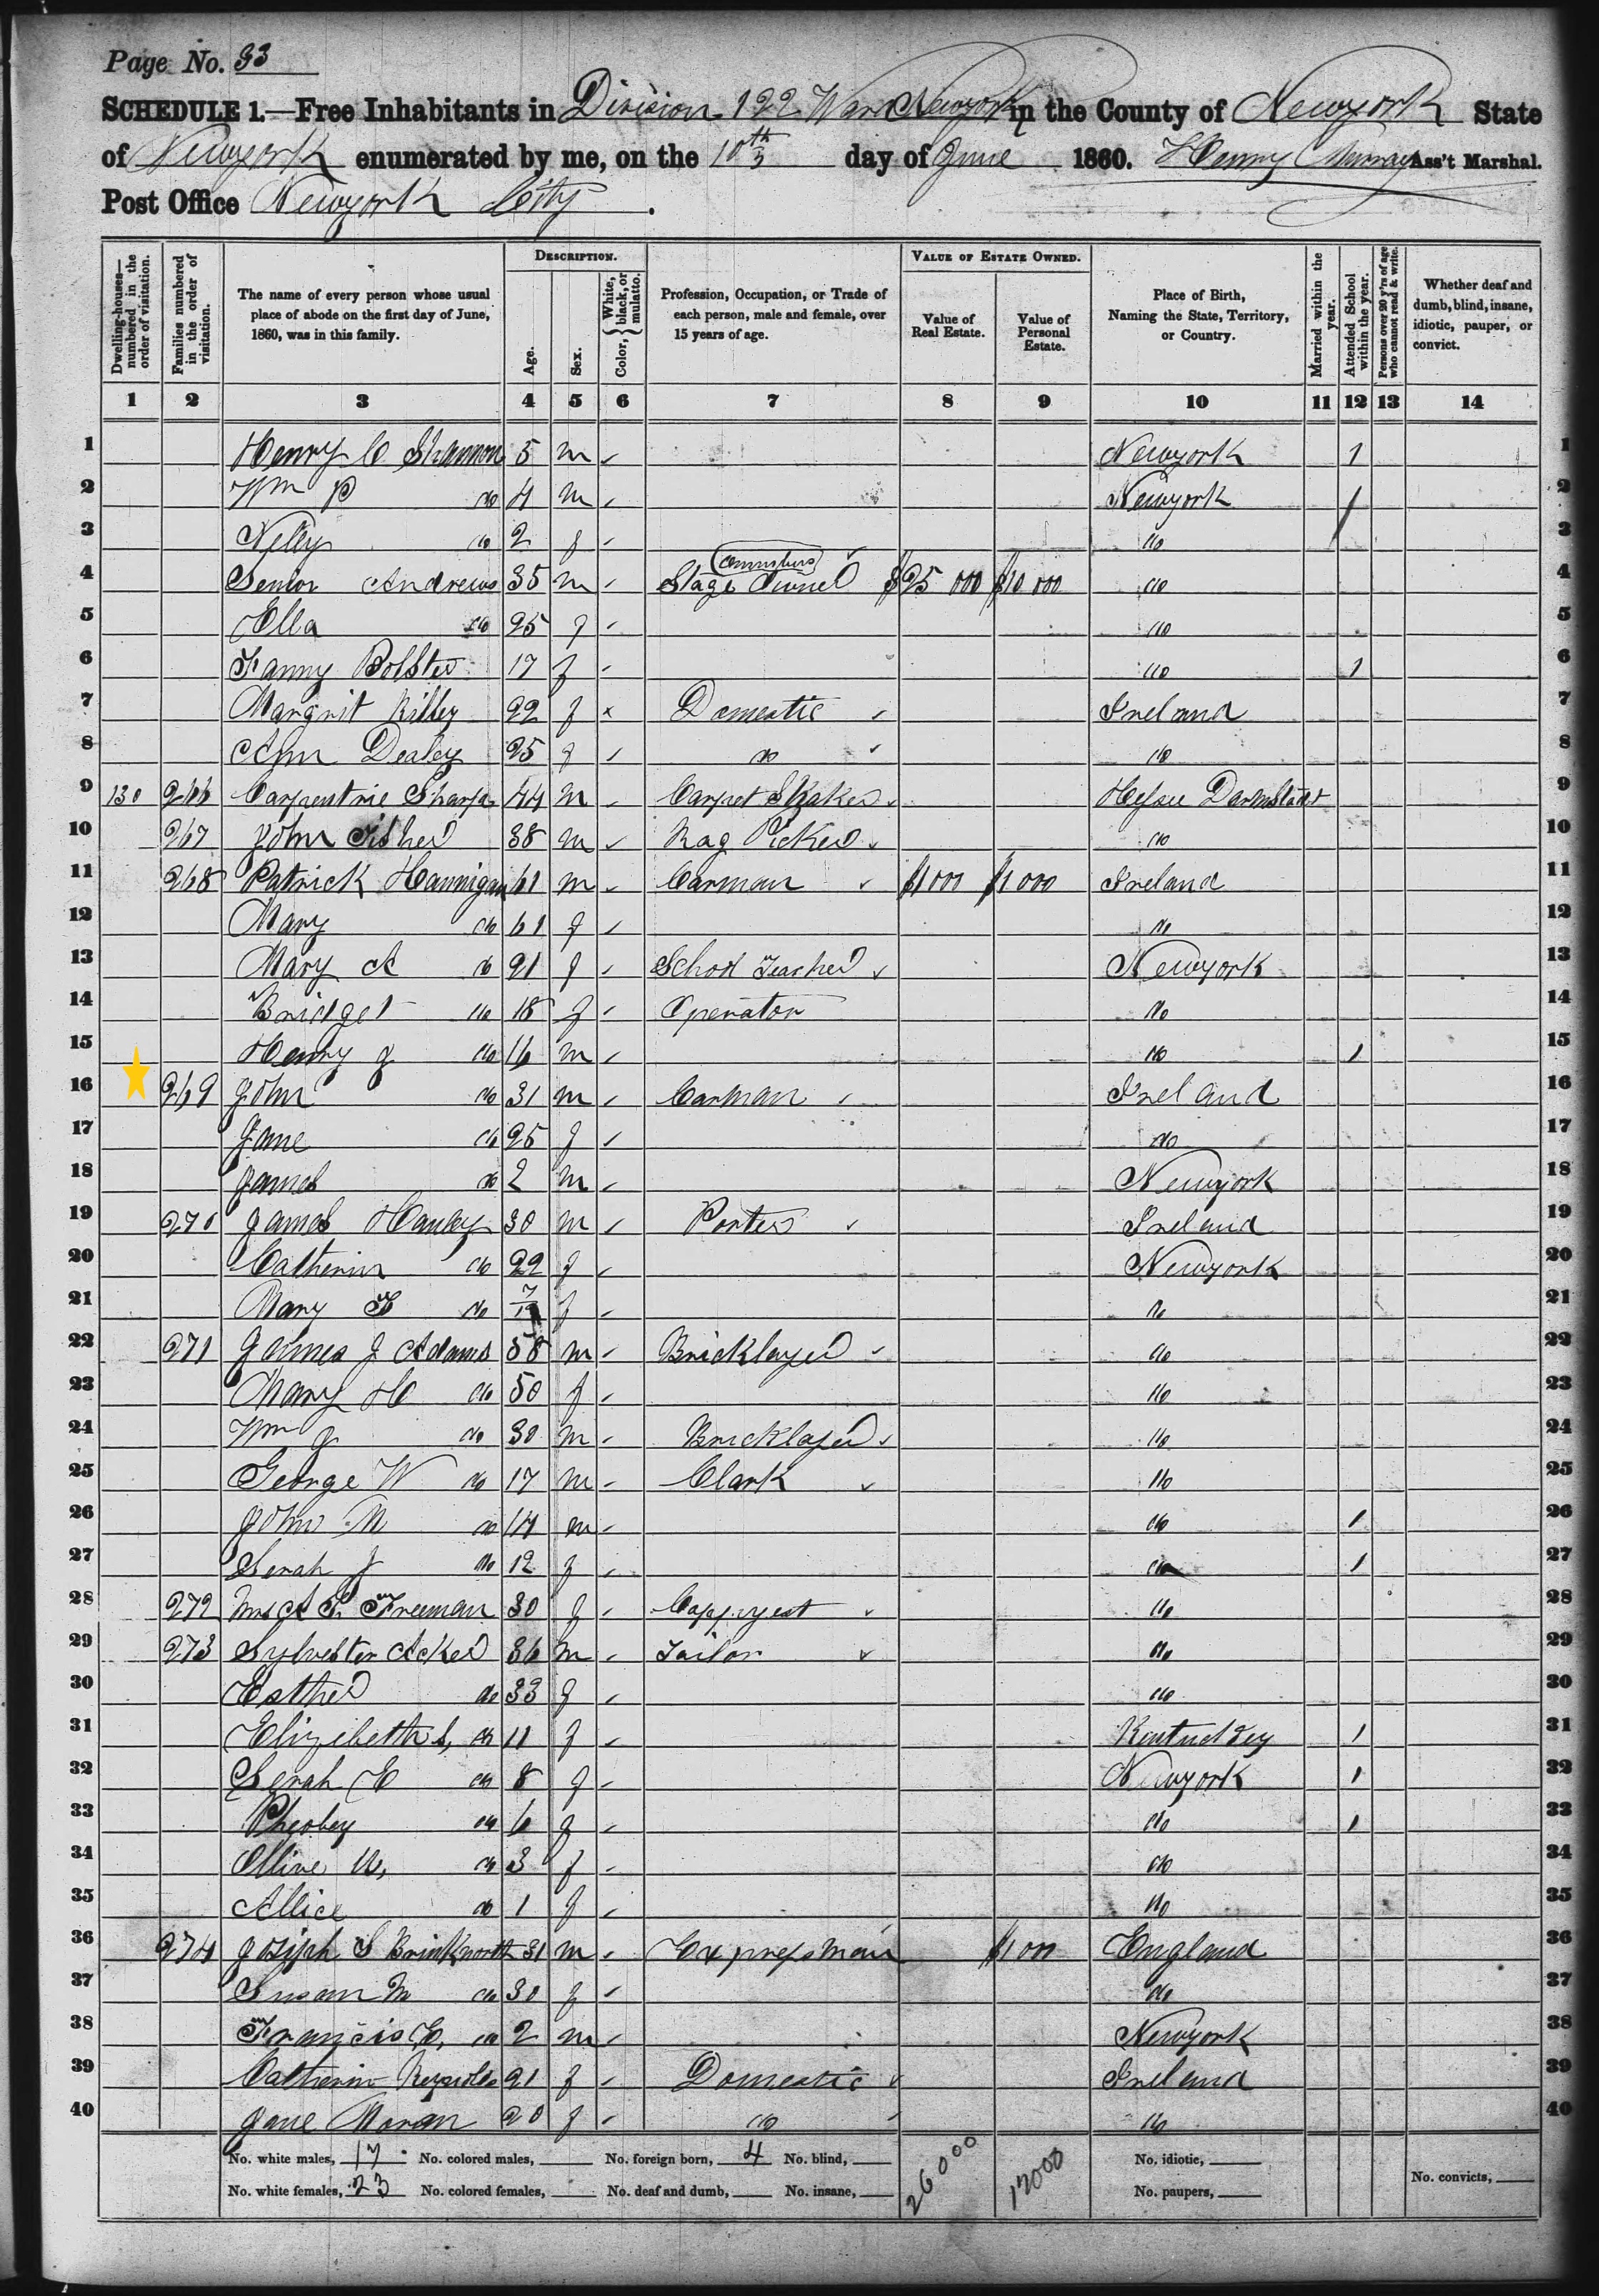 Page No. 33
SCHEDULE 1.—Free Inhabitants in Division 1 22 Ward Newyork in the County of Newyork State
of Newyork enumerated by me, on the 10th day of June 1860. Henry Murray Ass't Marshal.
Post Office Newyork City.
Dwelling-houses—numbered in the order of visitation.
Families numbered in the order of visitation.
The name of every person whose usual place of abode on the first day of June, 1860, was in this family.
DESCRIPTION.
Age.
Sex.
Color, {White, black, or mulatto.
Profession, Occupation, or Trade of each person, male and female, over 15 years of age.
VALUE OF ESTATE OWNED.
Value of Real Estate.
Value of Personal Estate.
Place of Birth, Naming the State, Territory, or Country.
Married within the year.
Attended School within the year.
Persons over 20 y'rs of age who cannot read & write.
Whether deaf and dumb, blind, insane, idiotic, pauper, or convict.
1 2 3 4 5 6 7 8 9 10 11 12 13 14
1 Henry C Shannon 5 m Newyork 1 1
2 Wm P do 4 m Newyork / 2
3 Nelly do 2 f do 3
4 Senior Andrews 35 m Stage Owner Omnibus $25 000 $10 000 do 4
5 Ella do 25 f do 5
6 Fanny Bolster 17 f do 1 6
7 Margrit Killey 22 f x Domestic Ireland 7
8 Ann Dealey 25 f do do 8
9 130 266 Carpentrie Sharpe 44 m Carpet Shaker Hesse Darmstadt 9
10 267 John Fisher 38 m Rag Picker do 10
11 268 Patrick Hannigan 61 m Carman $1000 $1000 Ireland 11
12 Mary do 61 f do 12
13 Mary A do 21 f School Teacher Newyork 13
14 Bridget do 18 f Operator do 14
15 Henry J do 16 m do 1 15
16 269 John do 31 m Carman Ireland 16
17 Jane do 25 f do 17
18 James do 2 m Newyork 18
19 270 James Hanley 30 m Porter Ireland 19
20 Catherin do 22 f Newyork 20
21 Mary F do 7/12 f do 21
22 271 James J Adams 58 m Bricklayer do 22
23 Mary H do 50 f do 23
24 Wm J do 30 m Bricklayer do 24
25 George W do 17 m Clark do 25
26 John M do 14 m do 1 26
27 Serah J do 12 f do 1 27
28 272 Mrs A F Freeman 30 f Coppyest do 28
29 273 Sylvester Acker 36 m Tailor do 29
30 Esther do 33 f do 30
31 Elizibeth S, do 11 f Kentuckey 1 31
32 Serah E do 8 f Newyork 1 32
33 Pheobey do 6 f do 1 33
34 Ollive do 3 f do 34
35 Allice do 1 f do 35
36 274 Josiph S Brinkworth 31 m Expressman $100 England 36
37 Susan M do 30 f do 37
38 Francis E, do 2 m Newyork 38
39 Catherin Reynolds 21 f Domestic Ireland 39
40 Jane Moran 20 f do do 40
No. white males, 17 No. colored males, No. foreign born, 4 No. blind, 26000 12000 No. idiotic,
No. white females, 23 No. colored females, No. deaf and dumb, No. insane, No. paupers, No. convicts,